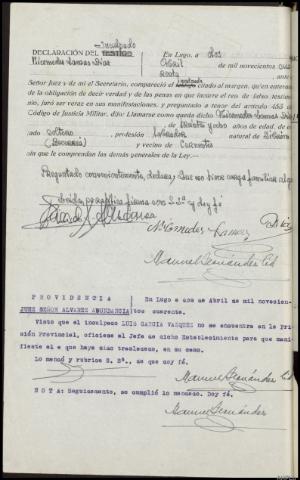 inculpado
DECLARACIÓN DEL TESTIGO
Nicomedes Lamas Díaz
En Lugo, a dos
Abril de mil novecientos cua
renta , ante
Señor Juez y de mi el Secretario, compareció el citado al margen, quien enterado
de la obligación de decir verdad y de las penas en que incurre el reo de falso testimo-
nio, juró ser veraz en sus manifestaciones, y preguntado a tenor del artículo 453 d
Código de Justicia Militar, dijo: Llamarse como queda dicho Nicomedes Lamas Díaz
de años de edad, de e
soltero , profesión labrador natural de
y vecino de Cervantes
que le comprendan las demás generales de la Ley.—
Preguntado convenientemente, declara: Que no tiene cargo familiar alg
Leída, se ratifica, firma con S.Sª y doy fé
Nicomedes Lamas Díaz
Manuel Fernández Cid
PROVIDENCIA En Lugo a dos de Abril de mil novecien-
JUEZ SEÑOR ALVAREZ ABUNDANCIA tos cuarenta.
Visto que el inculpado LUIS GARCIA VAZQUEZ no se encuentra en la Pri
sión Provincial, ofíciese al Jefe de dicho Establecimiento para que mani
fieste el que haya sido trasladado, en su caso.
Lo mandó y rubrica S. Sª., de que doy fé.
Manuel Fernández Cid
NOTA: Seguidamente, se cumplió lo mandado. Doy fé.
Manuel Fernández